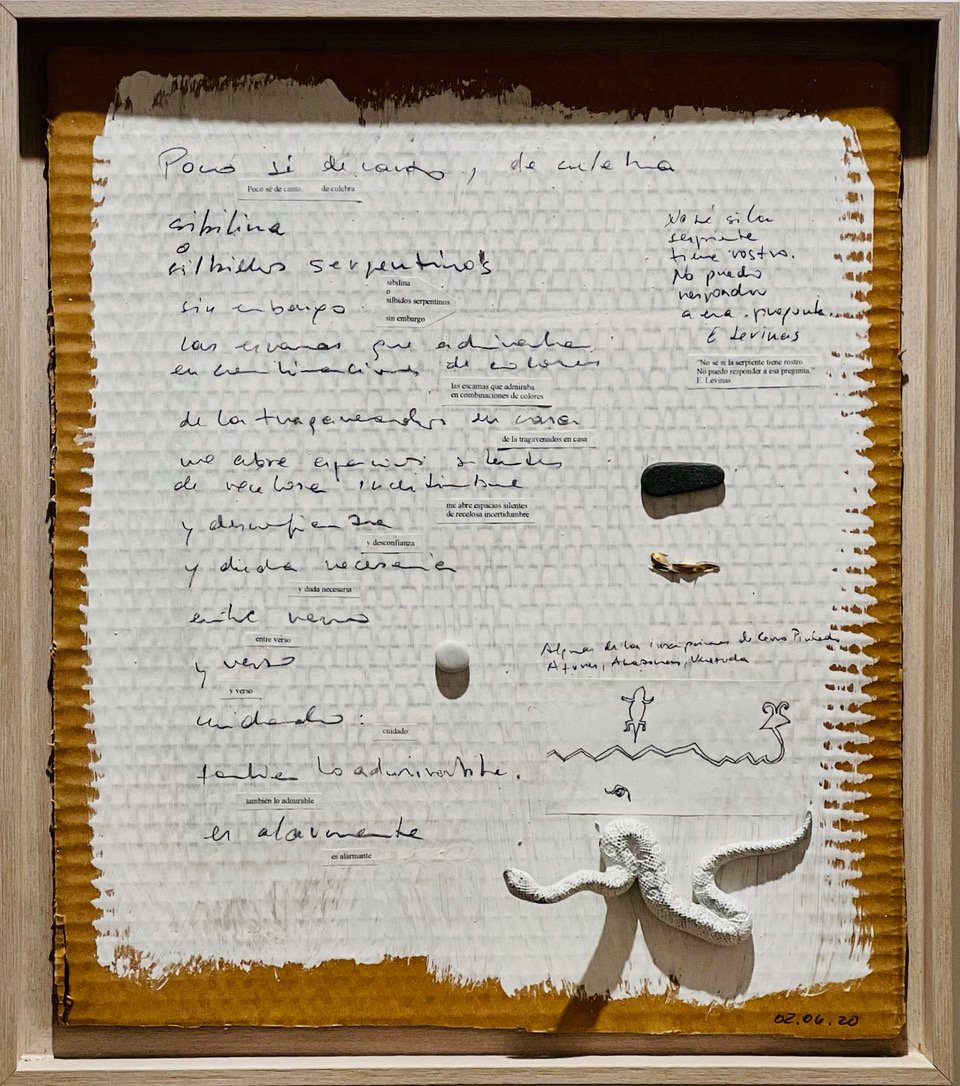 Poco sé de canto, de culebra
Poco sé de canto, de culebra
sibilina
o
silbidos serpentinos
sibilina
o
silbidos serpentinos
sin embargo
sin embargo
las escamas que admiraba
en combinaciones de colores
las escamas que admiraba
en combinaciones de colores
de la tragavenados en casa
de la tragavenados en casa
me abre espacios silentes
de recelosa incertidumbre
me abre espacios silentes
de recelosa incertidumbre
y desconfianza
y desconfianza
y duda necesaria
y duda necesaria
entre verso
entre verso
y verso
y verso
cuidado:
cuidado
también lo admirable
también lo admirable
es alarmante
es alarmante
No sé si la
serpiente
tiene rostro.
No puedo
responder
a esa pregunta.
E Levinas
"No sé si la serpiente tiene rostro
No puedo responder a esa pregunta."
E. Levinas
Algunas de las inscripciones de Cerro Pintado,
Atures, Amazonas, Venezuela
02.06.20